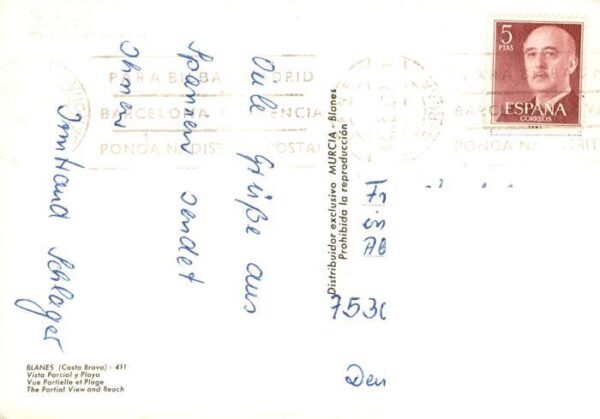 5
PTAS
ESPAÑA
CORREOS
PARA BILBAO MADRID
BARCELONA VALENCIA
PONGA Nº DISTRITO POSTAL
Viele Grüße aus
Spanien sendet
Ihnen
Irmtraud Schlager
Distribuidor exclusivo MURCIA - Blanes
Prohibida la reproducción
Fr
in
AB
7530
Den
BLANES (Costa Brava) - 411
Vista Parcial y Playa
Vue Partielle et Plage
The Partial View and Beach